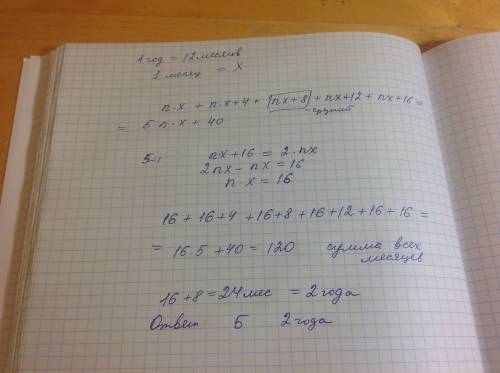 1 год = 12 месяцев
1 месяц = x
n·x + n·x+4 + (nx+8) + nx+12 + nx+16 =
средний
= 5·n·x + 40
5-1 nx+16 = 2·nx
2nx - nx = 16
n·x = 16
16 + 16+4 + 16+8 + 16+12 + 16+16 =
= 16·5 + 40 = 120 сумма всех
месяцев
16+8 = 24 мес = 2 года
Ответ Б 2 года